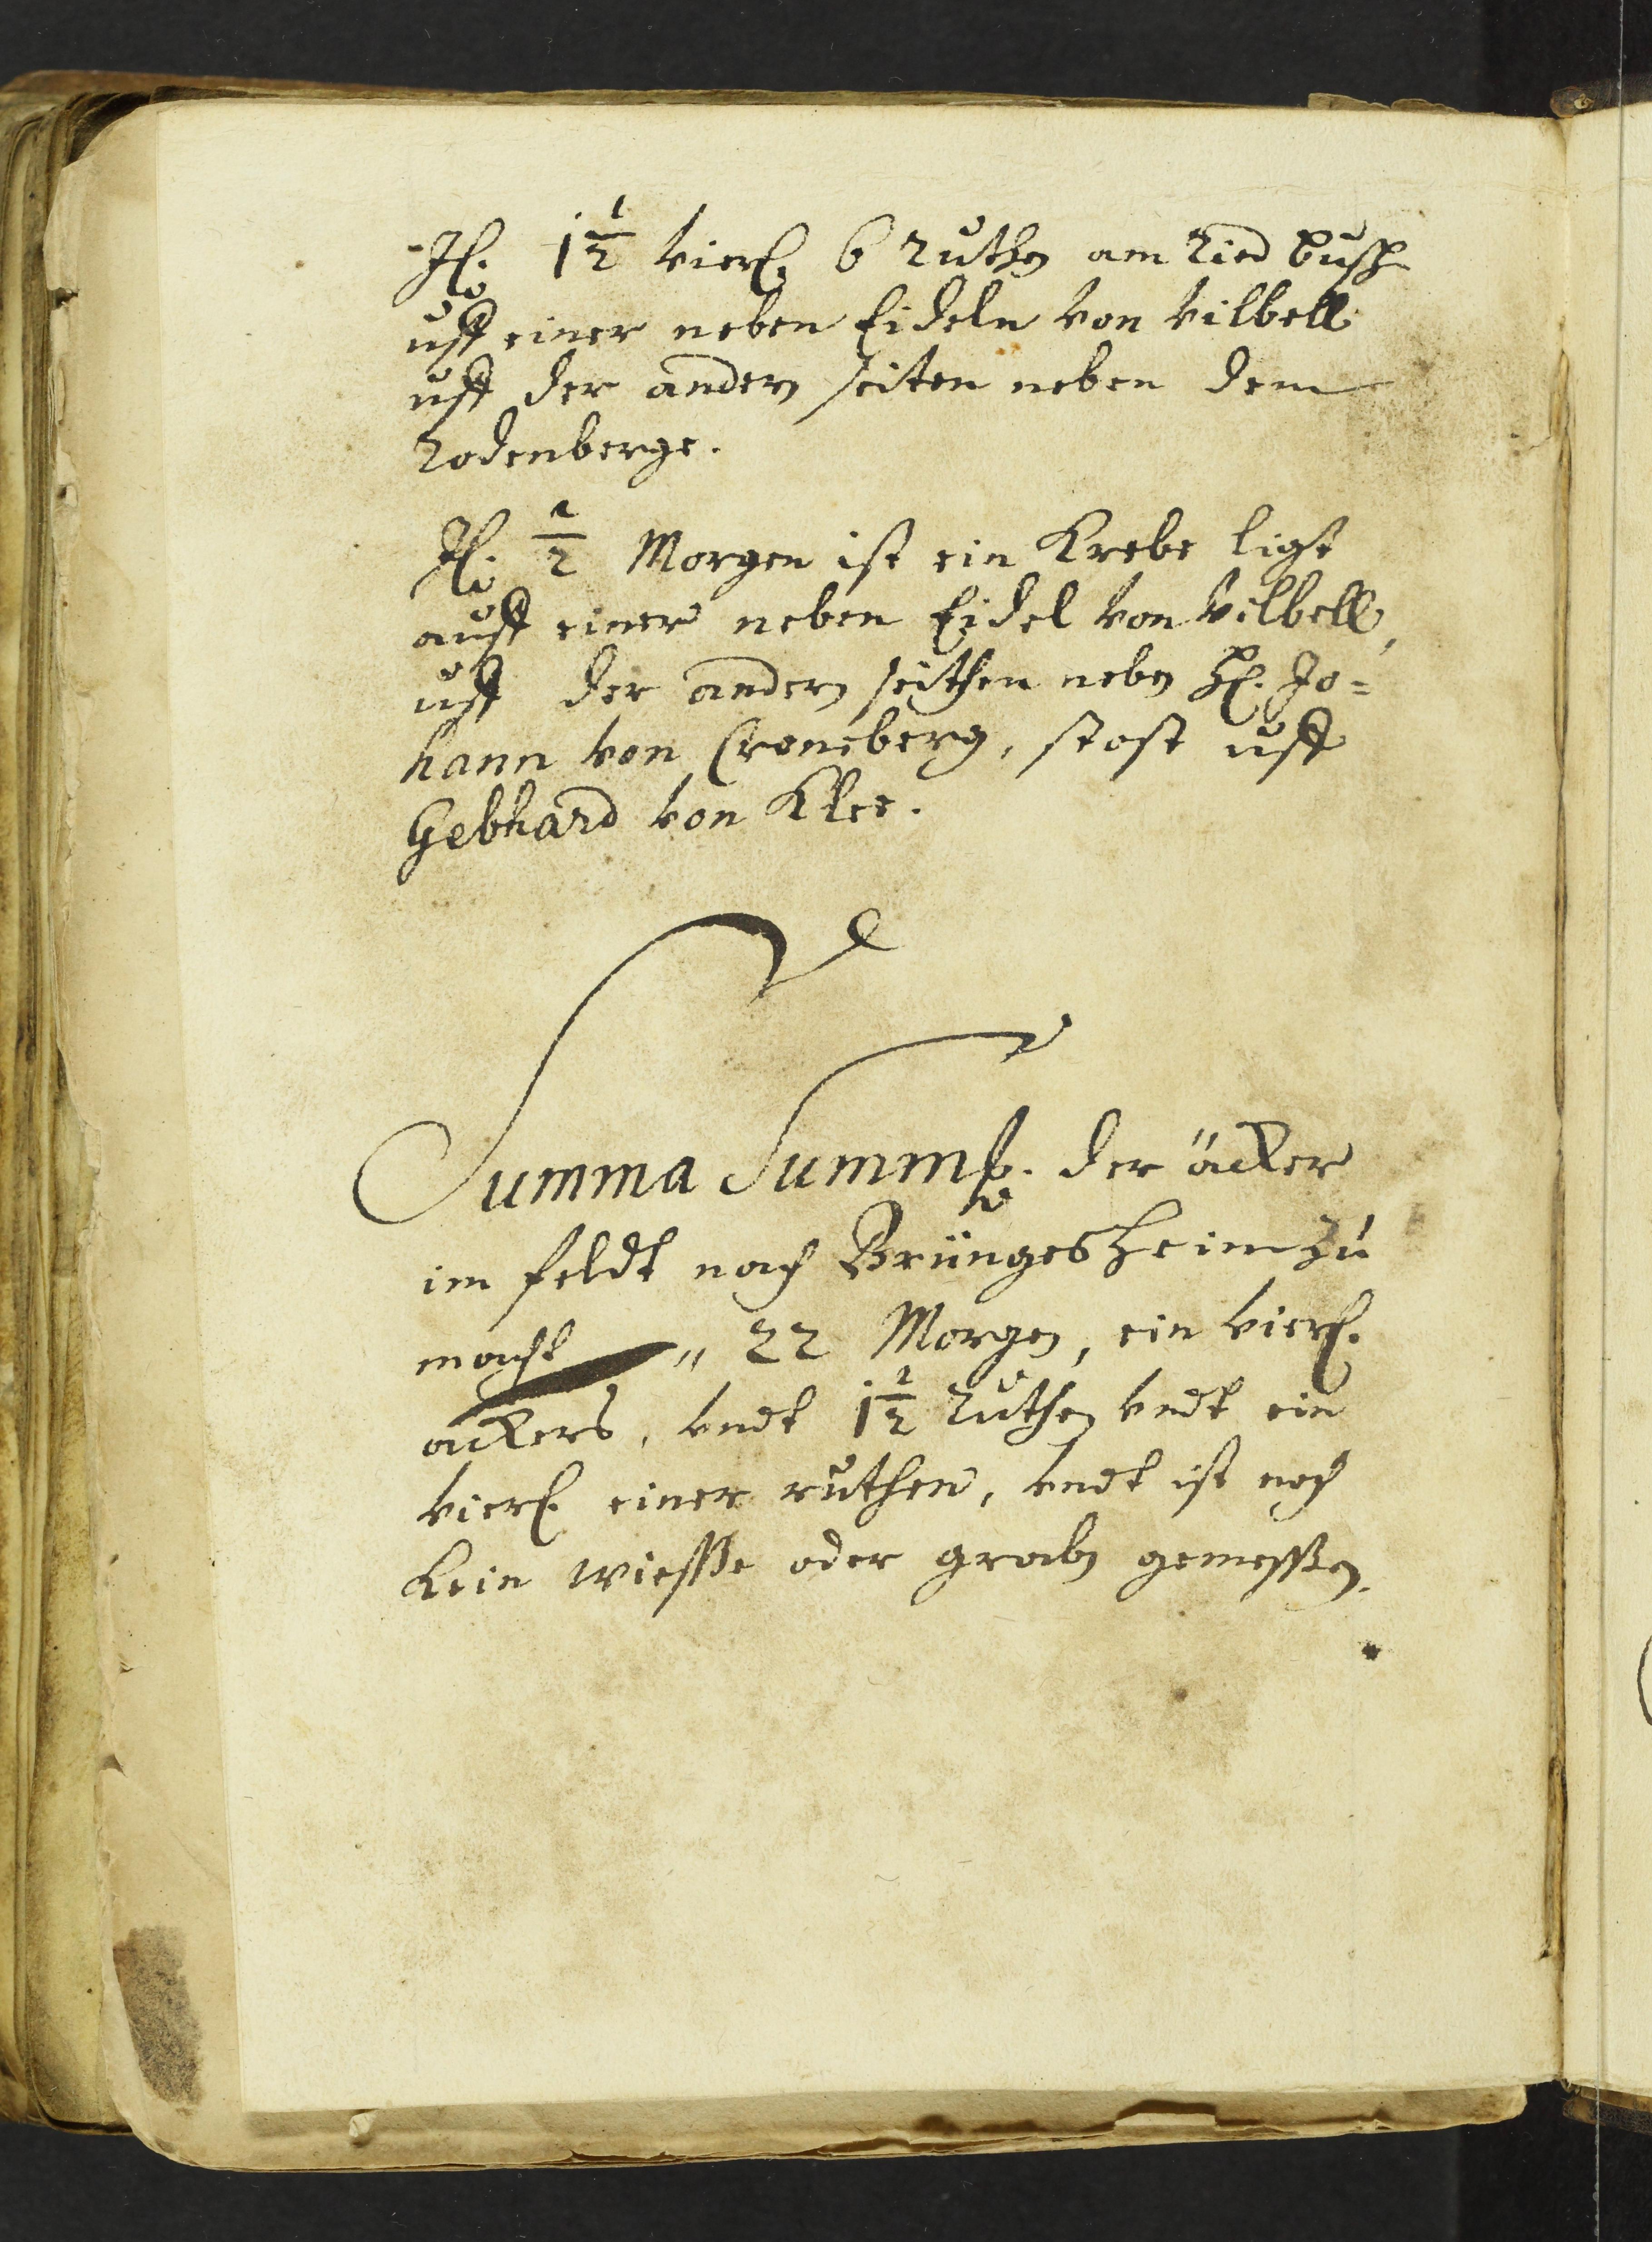 It. 1 1/2 vierl. 6 ruthen am Ried busch
uff einer neben Eideln von vilbell
uff der andern seiten neben dem
Rodenberge.
It. 1/2 Morgen ist ein Krebe ligt
auff einer neben Eidel von Vilbell,
uff der andern seithen neben H. Jo=
hann von Croneberg, stost uff
Gebhard von Klee.
Summa Summa. der äcker
im feldt nach Brüngesheim zu
macht " 22 Morgen, ein vierl.
ackers, vndt 1 1/2 Ruthen vndt ein
vierl. einer ruthen, vndt ist noch
kein wiesße oder graben gemesßen.